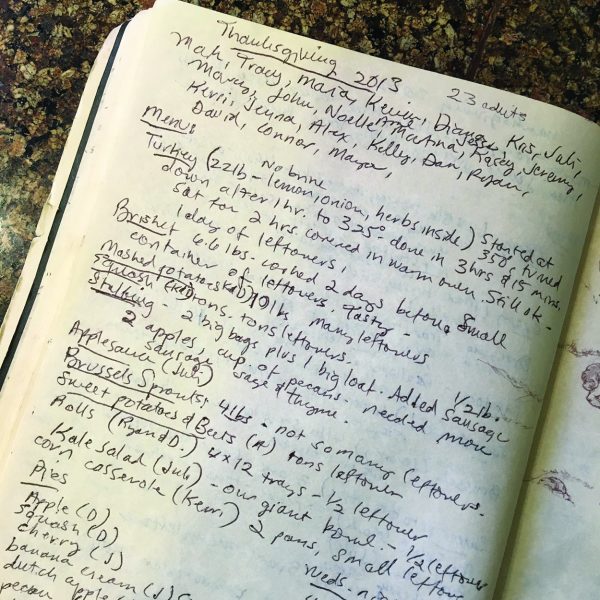 Thanksgiving 2013
23 adults
Mah, Tracy, Maria, Kevin, Diane, Kris, Juli,
Marco, John, Noelle, Martina, Kasey, Jeremy,
Kerri, Jenna, Alex, Kelly, Dan, Ryan,
David, Connor, Maya,
Menu:
no brine
Turkey (22lb - lemon, onion, herbs inside) Started at 350, turned
down after 1 hr. to 325° done in 3 hrs & 15 mins,
sat for 2 hrs covered in warm oven. Still ok -
1 day of leftovers,
Brisket 6.6 lbs - cooked 2 days before. Small
container of leftovers. Tasty -
Mashed potatoes 10 lbs many leftovers
Squash tons leftovers.
Stuffing - 2 big bags plus 1 big loaf. Added 1/2 lb.
2 apples, cup of pecans. needed more sausage
sausage sage & thyme.
Applesauce (Juli)
Brussels Sprouts: 4 lbs - not so many leftovers.
Sweet potatoes & Beets (A) tons leftover
Rolls (Ryan & D.) 4x12 trays - 1/2 leftover
Kale Salad (Juli) - one giant bowl - 1/2 leftover
corn casserole (Kerri) 2 pans, small leftover
Pies
Apple (D)
squash (D)
cherry (J)
banana cream (J)
dutch apple
pecan